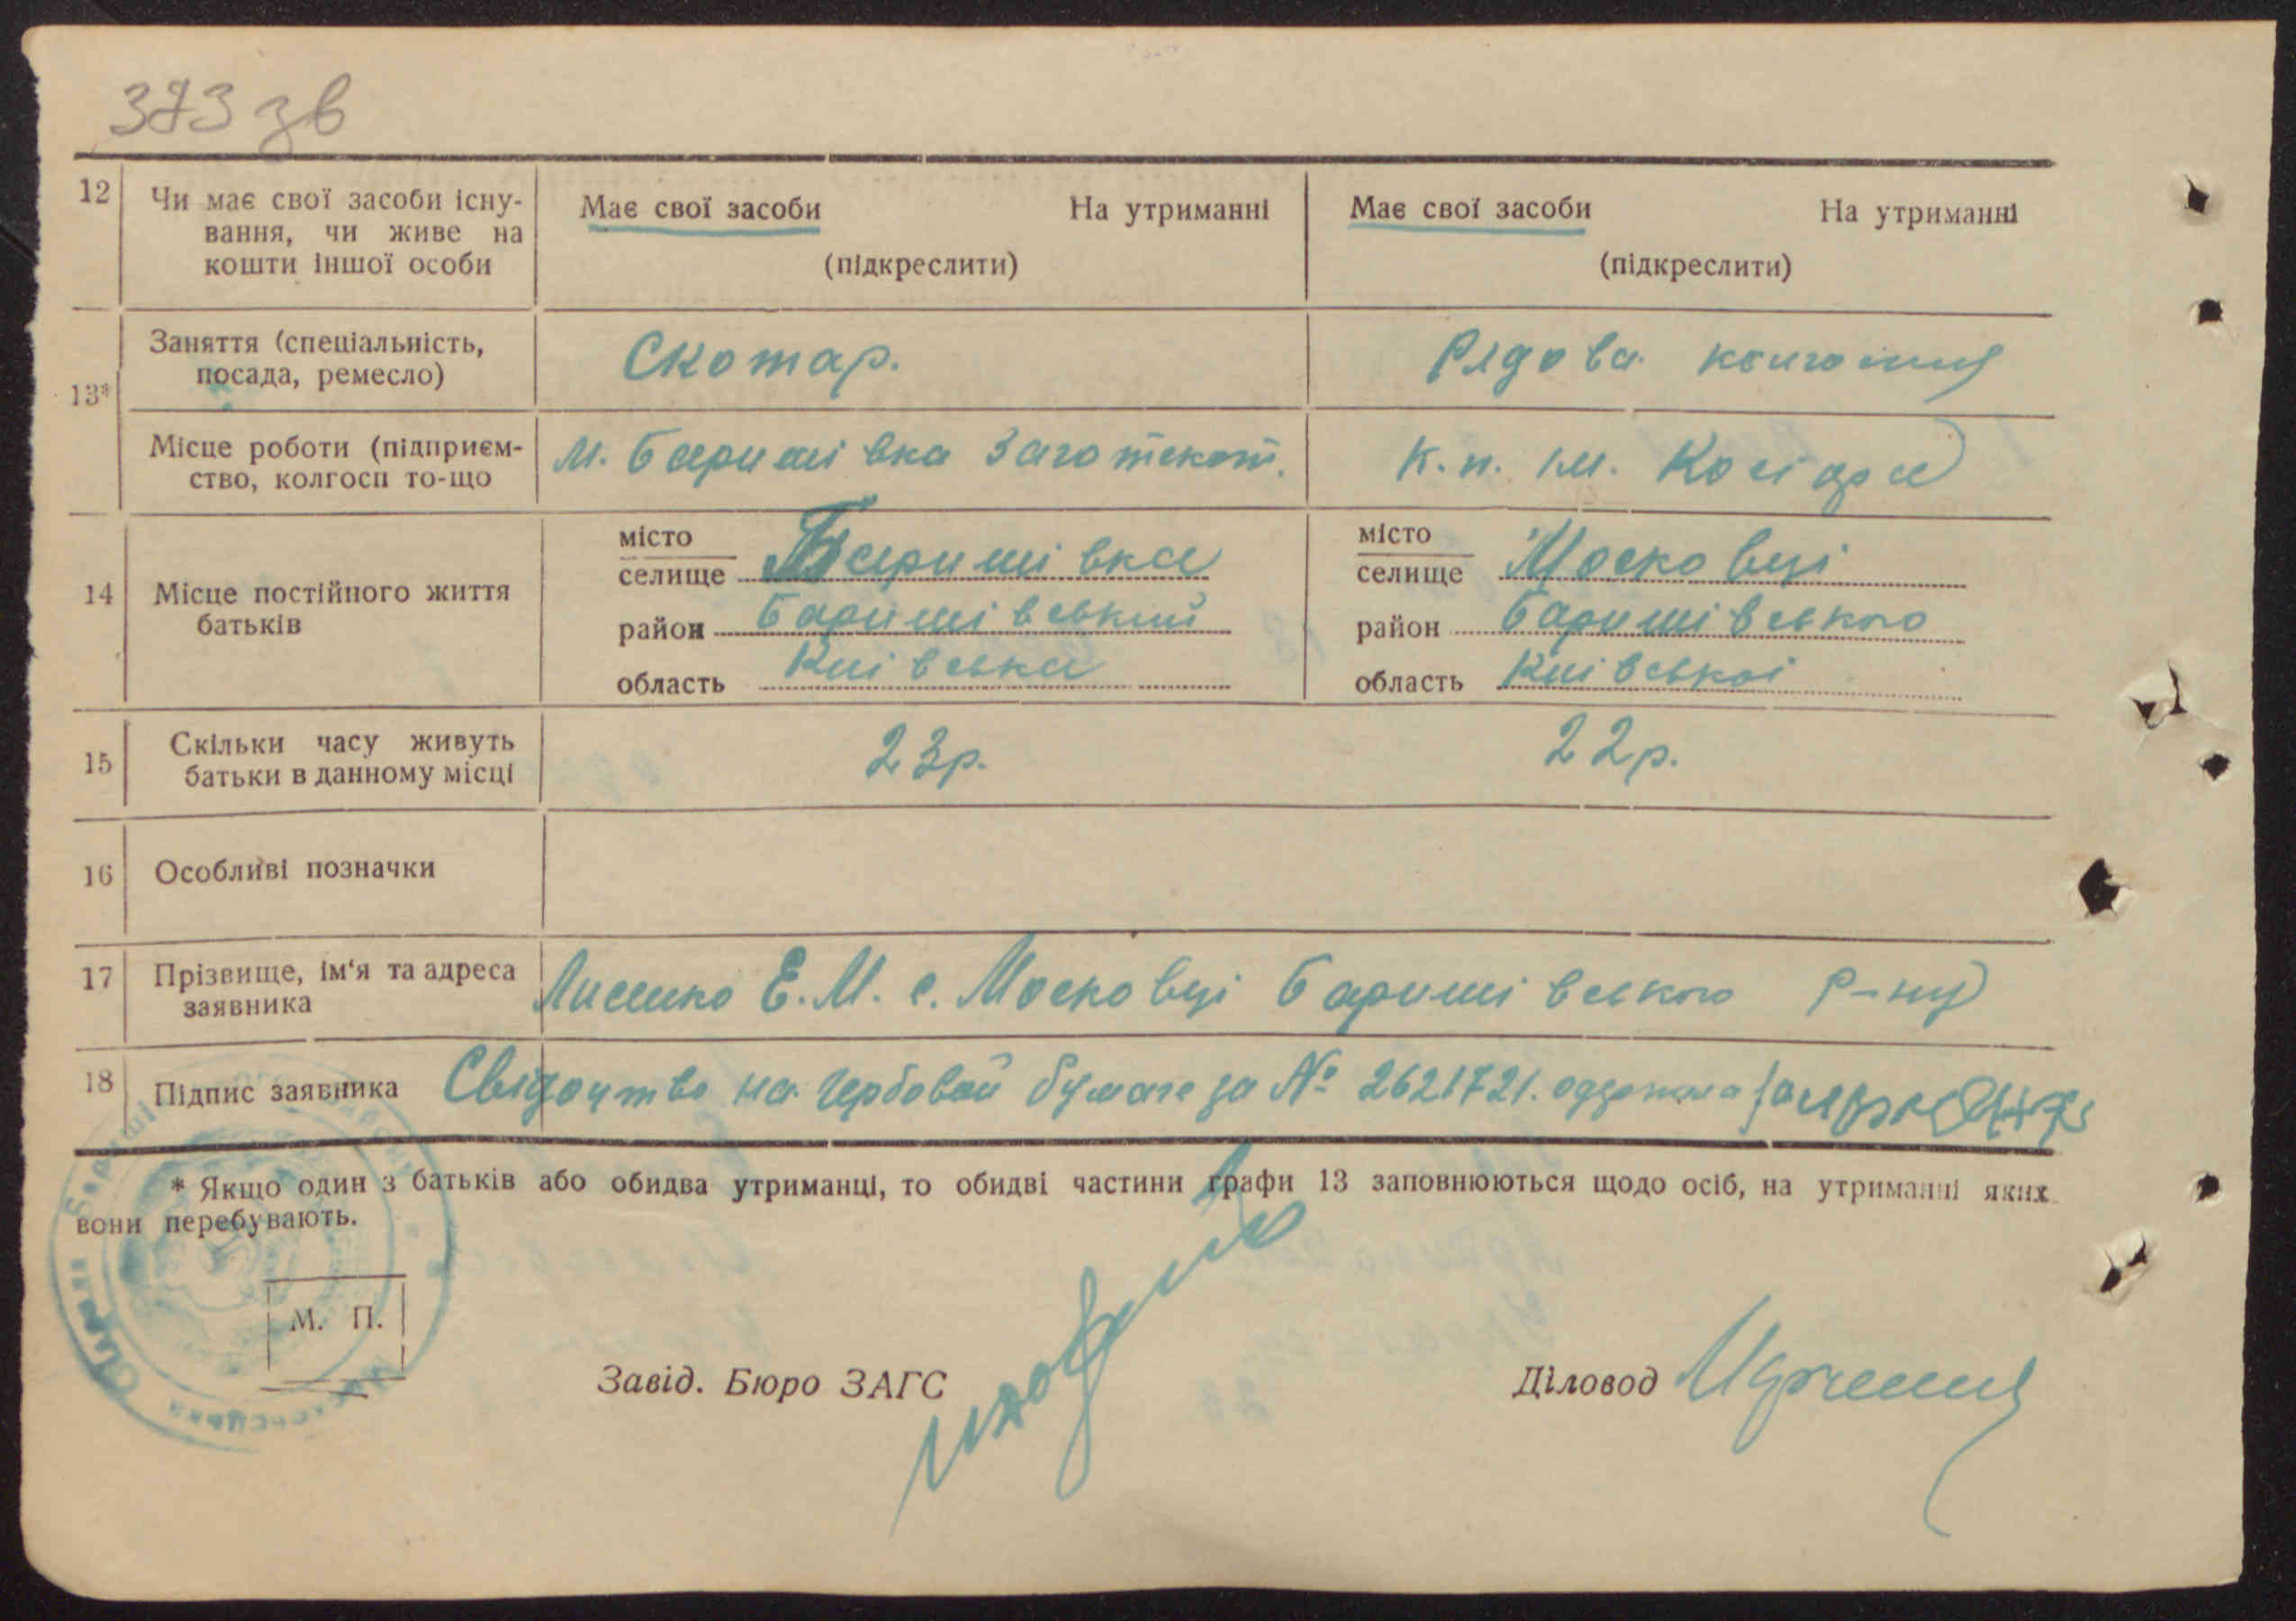 373 зв
12 Чи має свої засоби існу- Має свої засоби На утриманні Має свої засоби На утриманні
вання, чи живе на
кошти іншої особи (підкреслити) (підкреслити)
Заняття (спеціальність, Скотар. Рядова
13*
посада, ремесло)
Місце роботи (підприєм- м. Баришівка Заготскот. К.п. ім. Косіора
ство, колгосп то-що
місто місто
селище Баришівка селище Московці
14 Місце постійного життя
батьків
район Баришівський район Баришівського
область Киівська область Киівскоі
15 Скільки часу живуть 23р. 22р.
батьки в данному місці
16 Особливі позначки
17 Прізвище, ім'я та адреса Лисенко Е.М. с. Московці Баришівського р-ну
заявника
18 Підпис заявника Свідоцтво на гербовой бумаге за № 2621721.
* Якщо один з батьків або обидва утриманці, то обидві частини графи 13 заповнюються щодо осіб, на утриманні яких
вони перебувають.
М. П.
Завід. Бюро ЗАГС Діловод